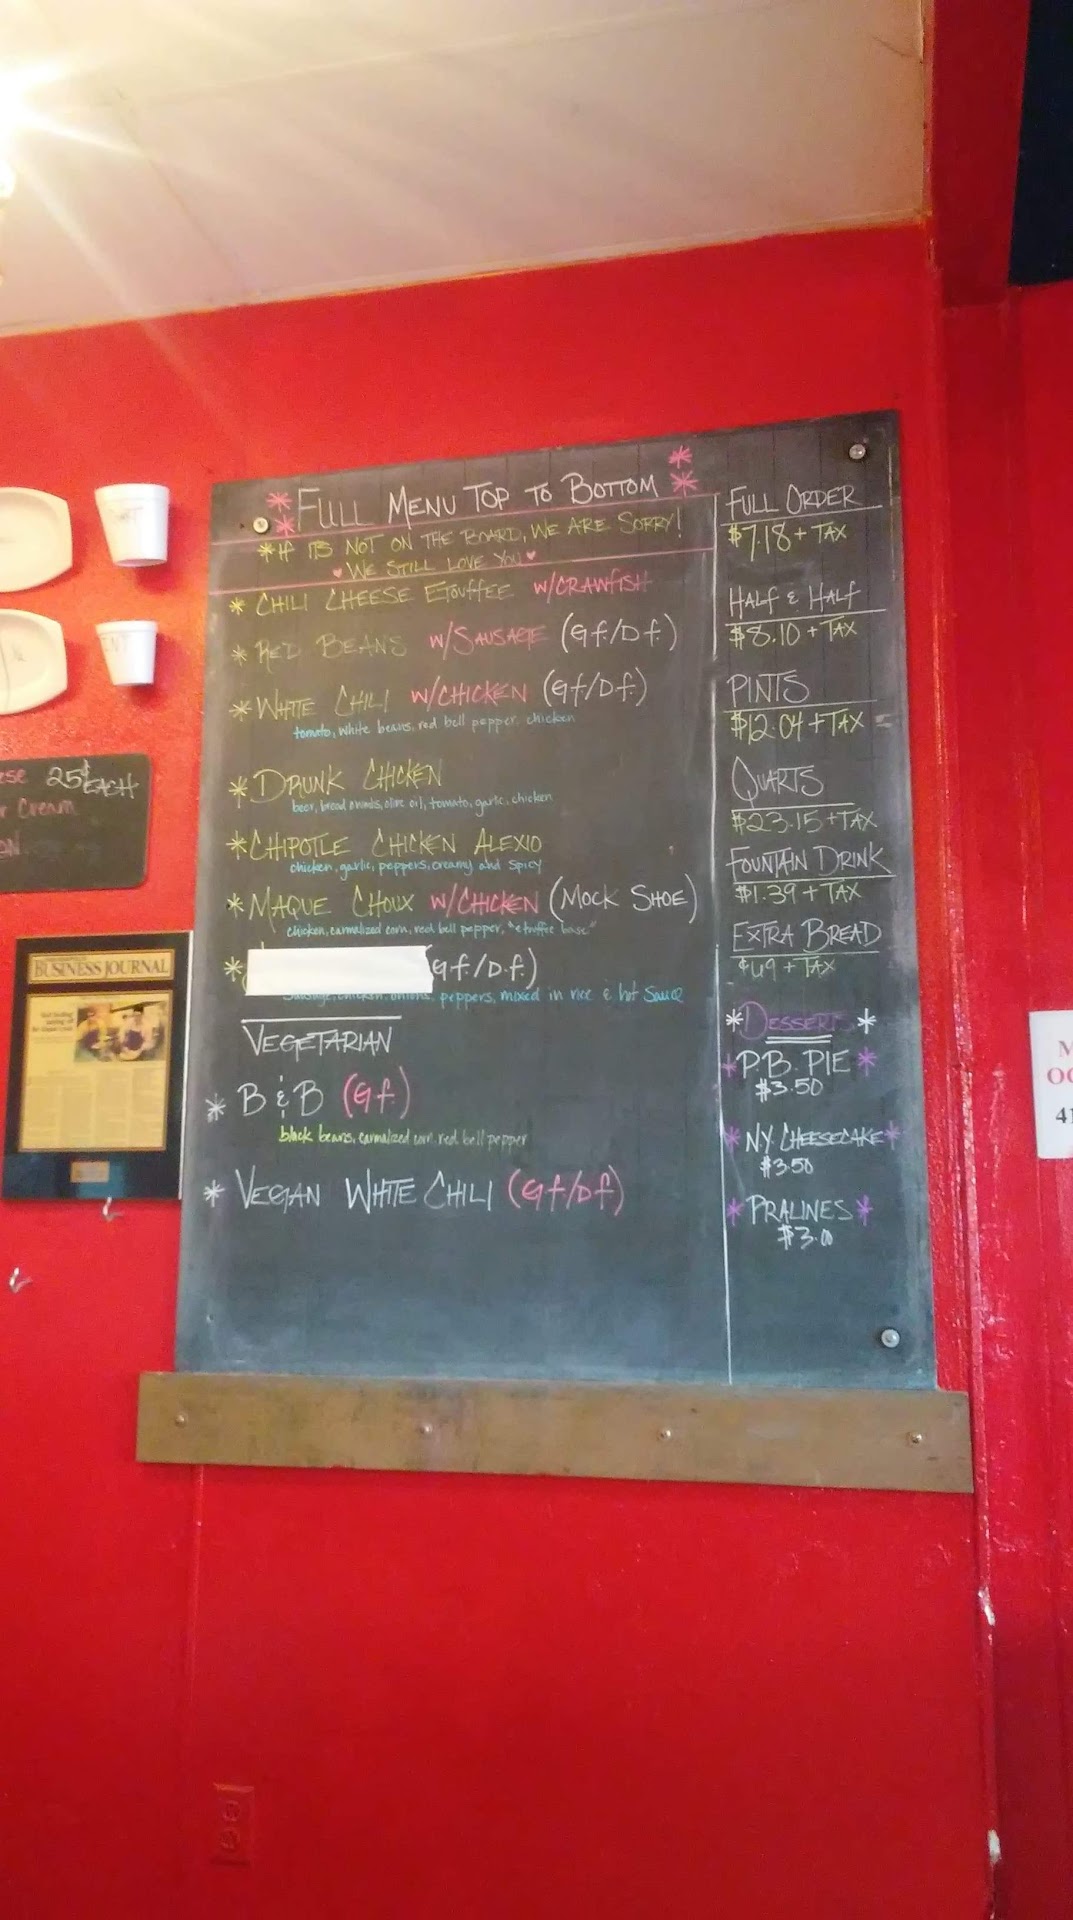 FULL MENU TOP TO BOTTOM
*IF ITS NOT ON THE BOARD, WE ARE SORRY!
WE STILL LOVE YOU
* CHILI CHEESE ETOUFFEE W/CRAWFISH
* RED BEANS W/SAUSAGE (Gf./Df.)
* WHITE CHILI W/CHICKEN (Gf/Df.)
tomato, white beans, red bell pepper, chicken
* DRUNK CHICKEN
beer, bread crumbs, olive oil, tomato, garlic, chicken
* CHIPOTLE CHICKEN ALEXIO
chicken, garlic, peppers, creamy and spicy
* MAQUE CHOUX W/CHICKEN (MOCK SHOE)
chicken, carmalized corn, red bell pepper, "etouffee base"
* (Gf./D.f.)
Sausage, chicken, onions, peppers, mixed in rice & hot sauce
VEGETARIAN
* B & B (Gf.)
black beans, carmalized corn, red bell pepper
* VEGAN WHITE CHILI (Gf/Df.)
FULL ORDER
$7.18 + TAX
HALF & HALF
$8.10 + TAX
PINTS
$12.04 + TAX
QUARTS
$23.15 + TAX
FOUNTAIN DRINK
$1.39 + TAX
EXTRA BREAD
¢49 + TAX
*DESSERTS*
*P.B. PIE*
$3.50
*NY CHEESECAKE*
$3.50
*PRALINES*
$3.00
25¢ EACH
Cream
BUSINESS JOURNAL